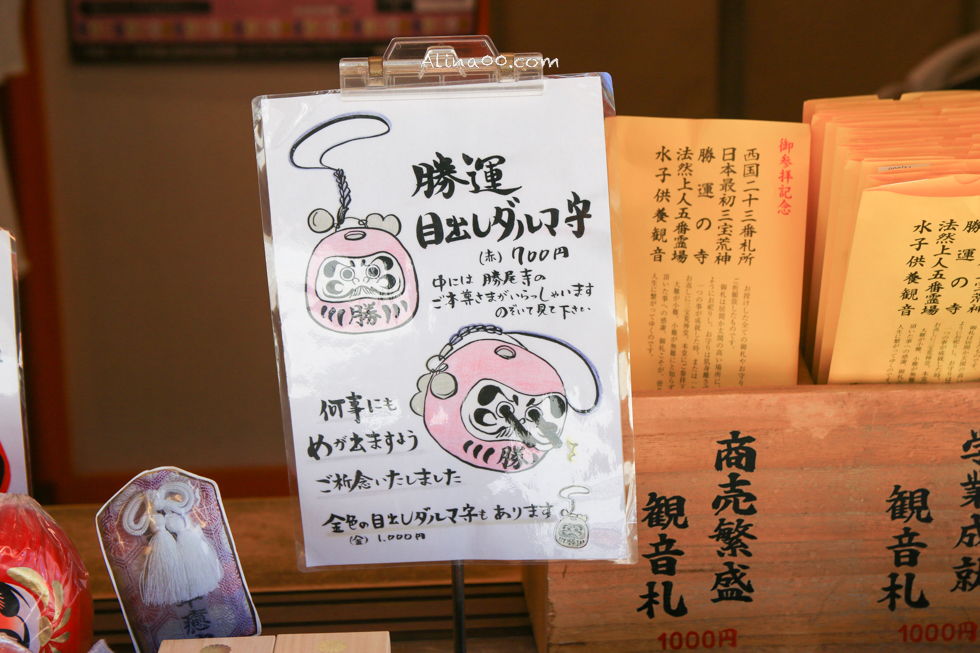 Alina00.com
勝運
目出しダルマ守
(赤) 700円
中には 勝尾寺の
ご本尊さまがいらっしゃいます
のぞいて見て下さい
勝
勝
何事にも
めが出ますよう
ご祈念いたしました
金色の目出しダルマ守も あります
(金) 1.000円
御参拝記念
西国二十三番札所
日本最初三宝荒神
勝運の寺
法然上人五番霊場
水子供養観音
勝運の
法然上人五番霊場
水子供養観音
商売繁盛
観音札
1000円
学業成就
観音札
1000円